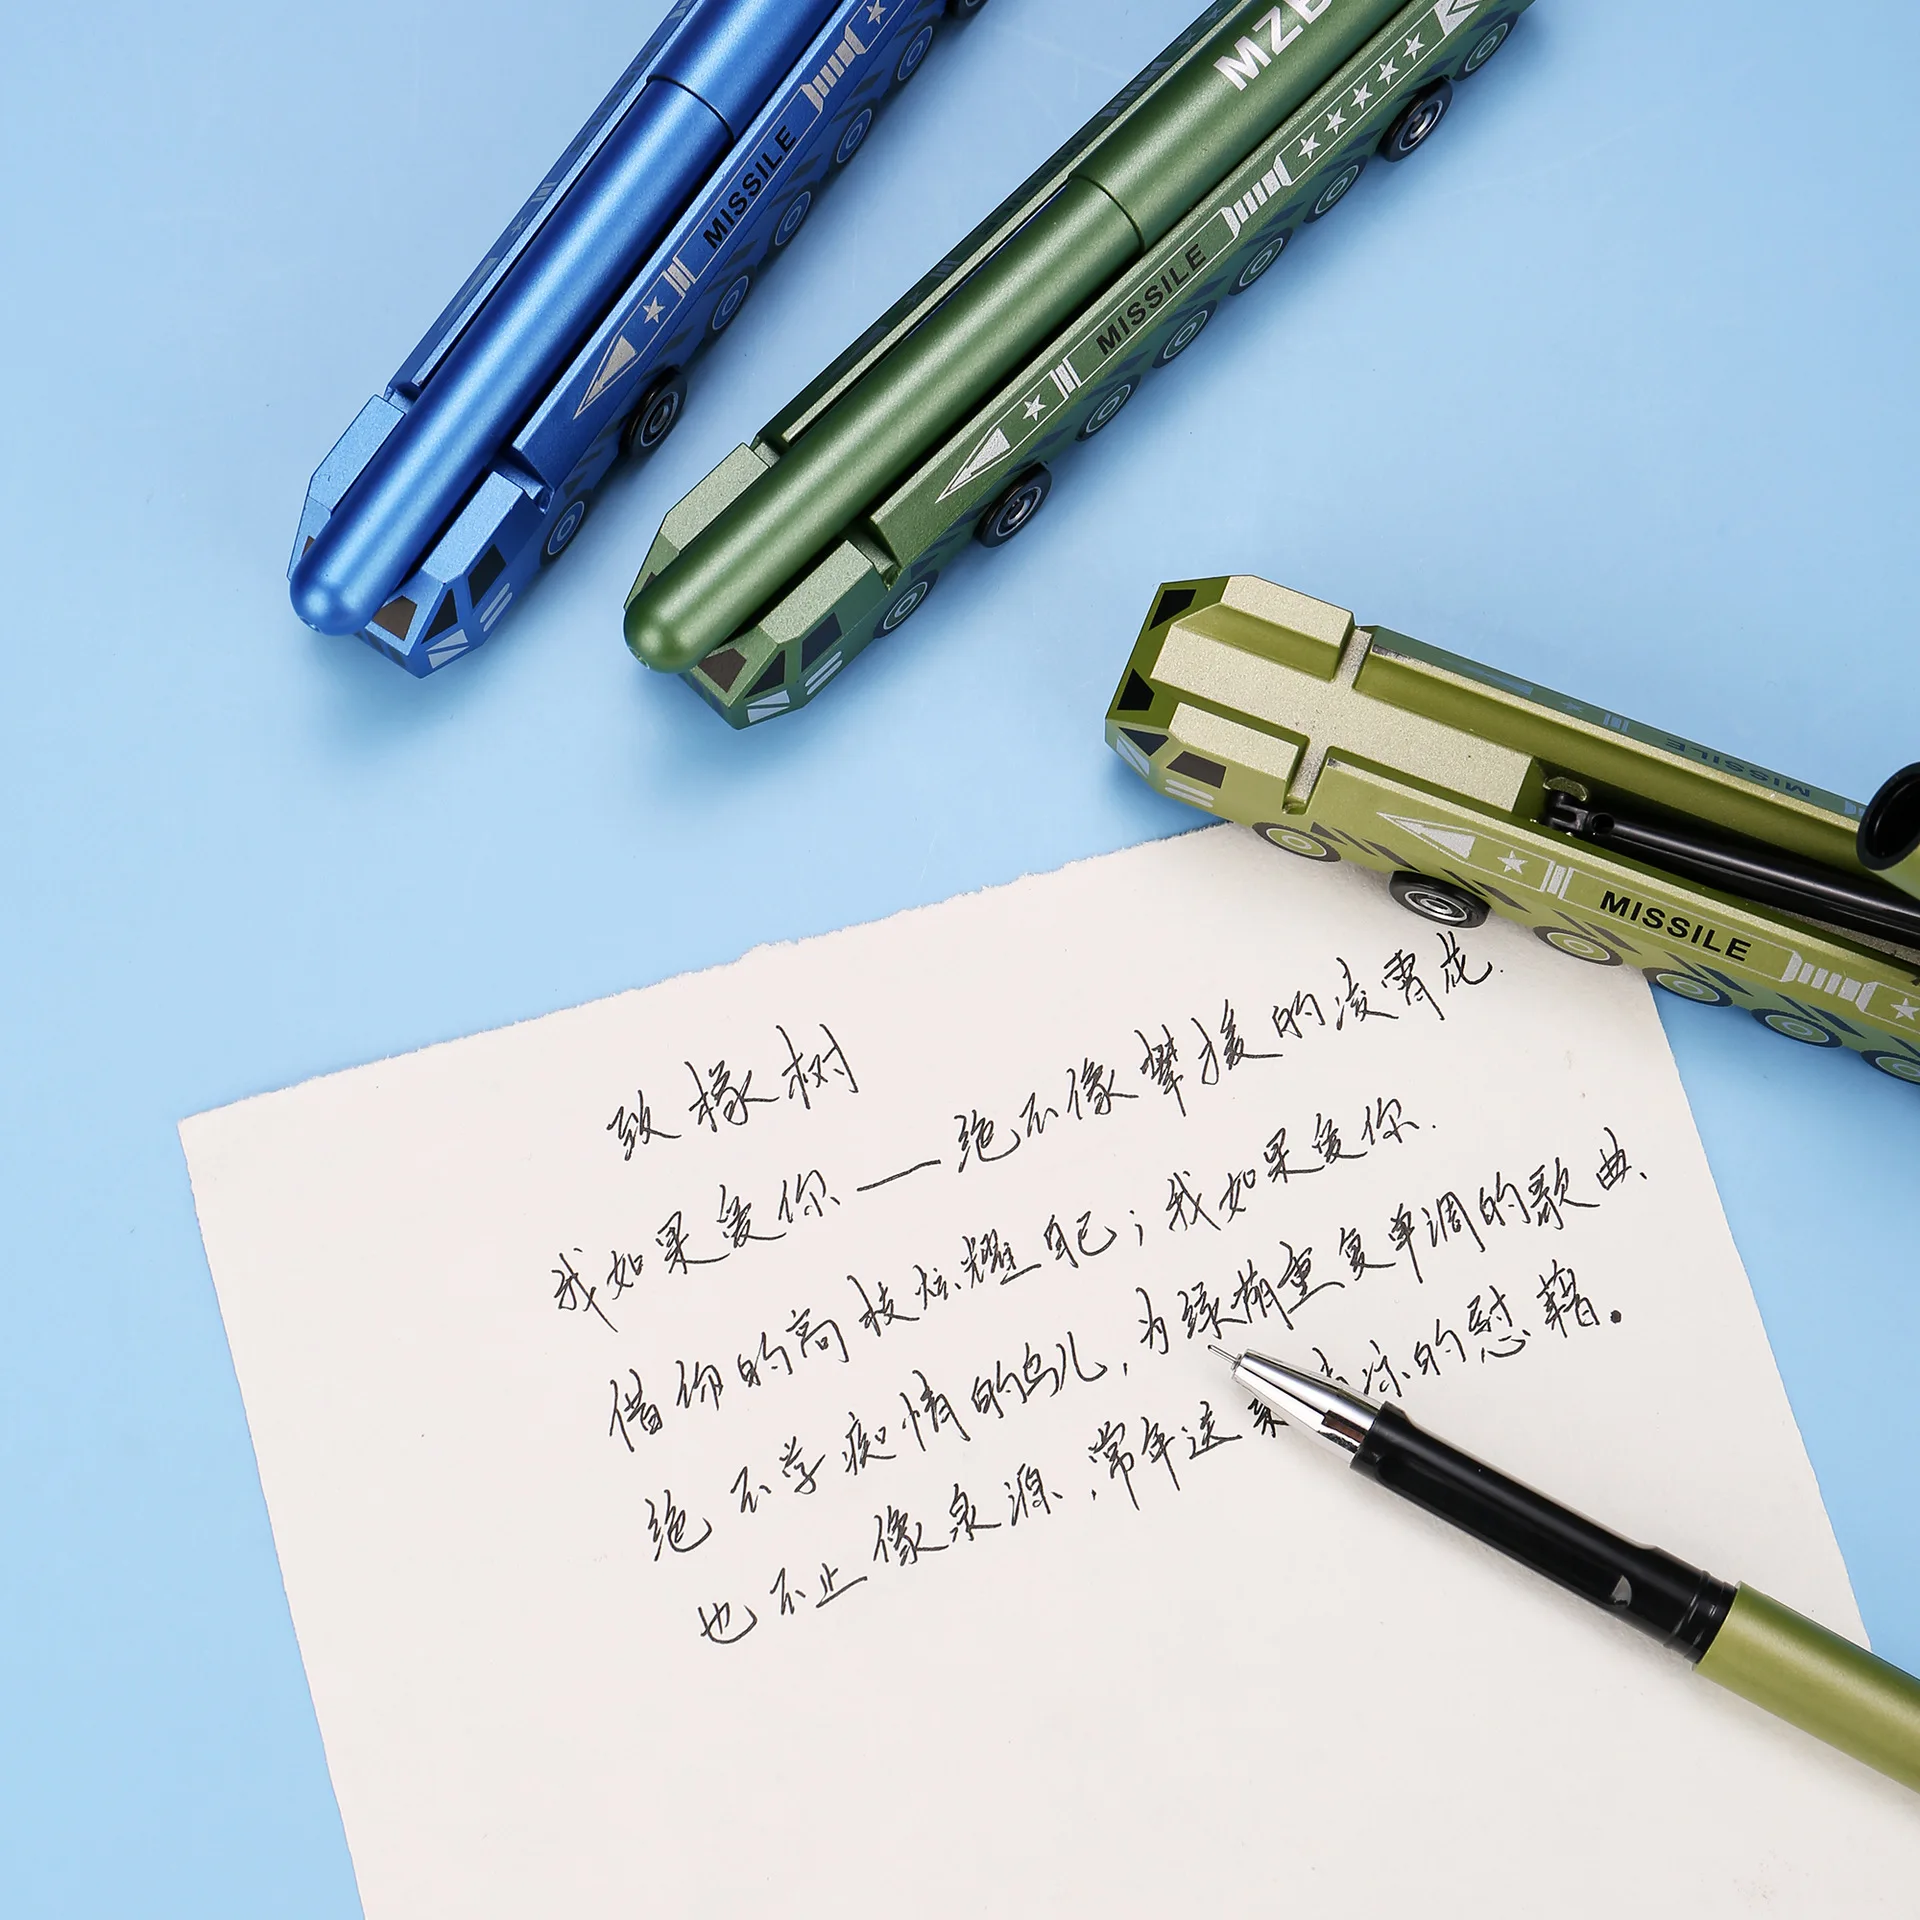 MISSILE
MZB
MISSILE
MISSILE
MISSILE
致橡树
我如果爱你——绝不像攀援的凌霄花.
借你的高枝炫耀自己；我如果爱你.
绝不学痴情的鸟儿，为绿荫重复单调的歌曲、
也不止像泉源，常年送来凉的慰藉。